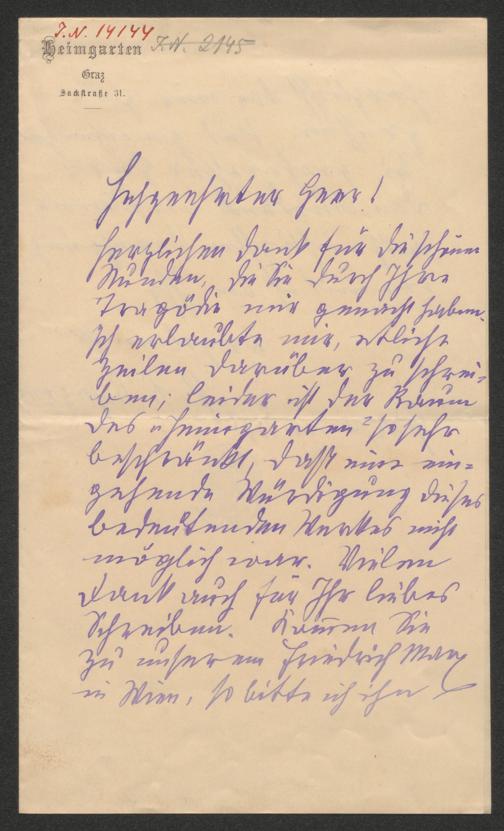 J.N. 14144
J.N. 2145
Heimgarten
Graz
Sackstraße 31.
Hochgeehrter Herr!
Herzlichen Dank für die schönen
Stunden, die Sie durch Ihre
Tragödie mir gemacht haben.
Ich erlaubte mir, etliche
Zeilen darüber zu schrei=
ben; leider ist der Raum
des "Heimgarten" so sehr
beschränkt, daß eine ein=
gehende Würdigung dieses
bedeutenden Werkes nicht
möglich war. Vielen
Dank auch für Ihr liebes
Schreiben. Kommen Sie
zu unserem Friedrich Marx
in Wien, so bitte ich ihn